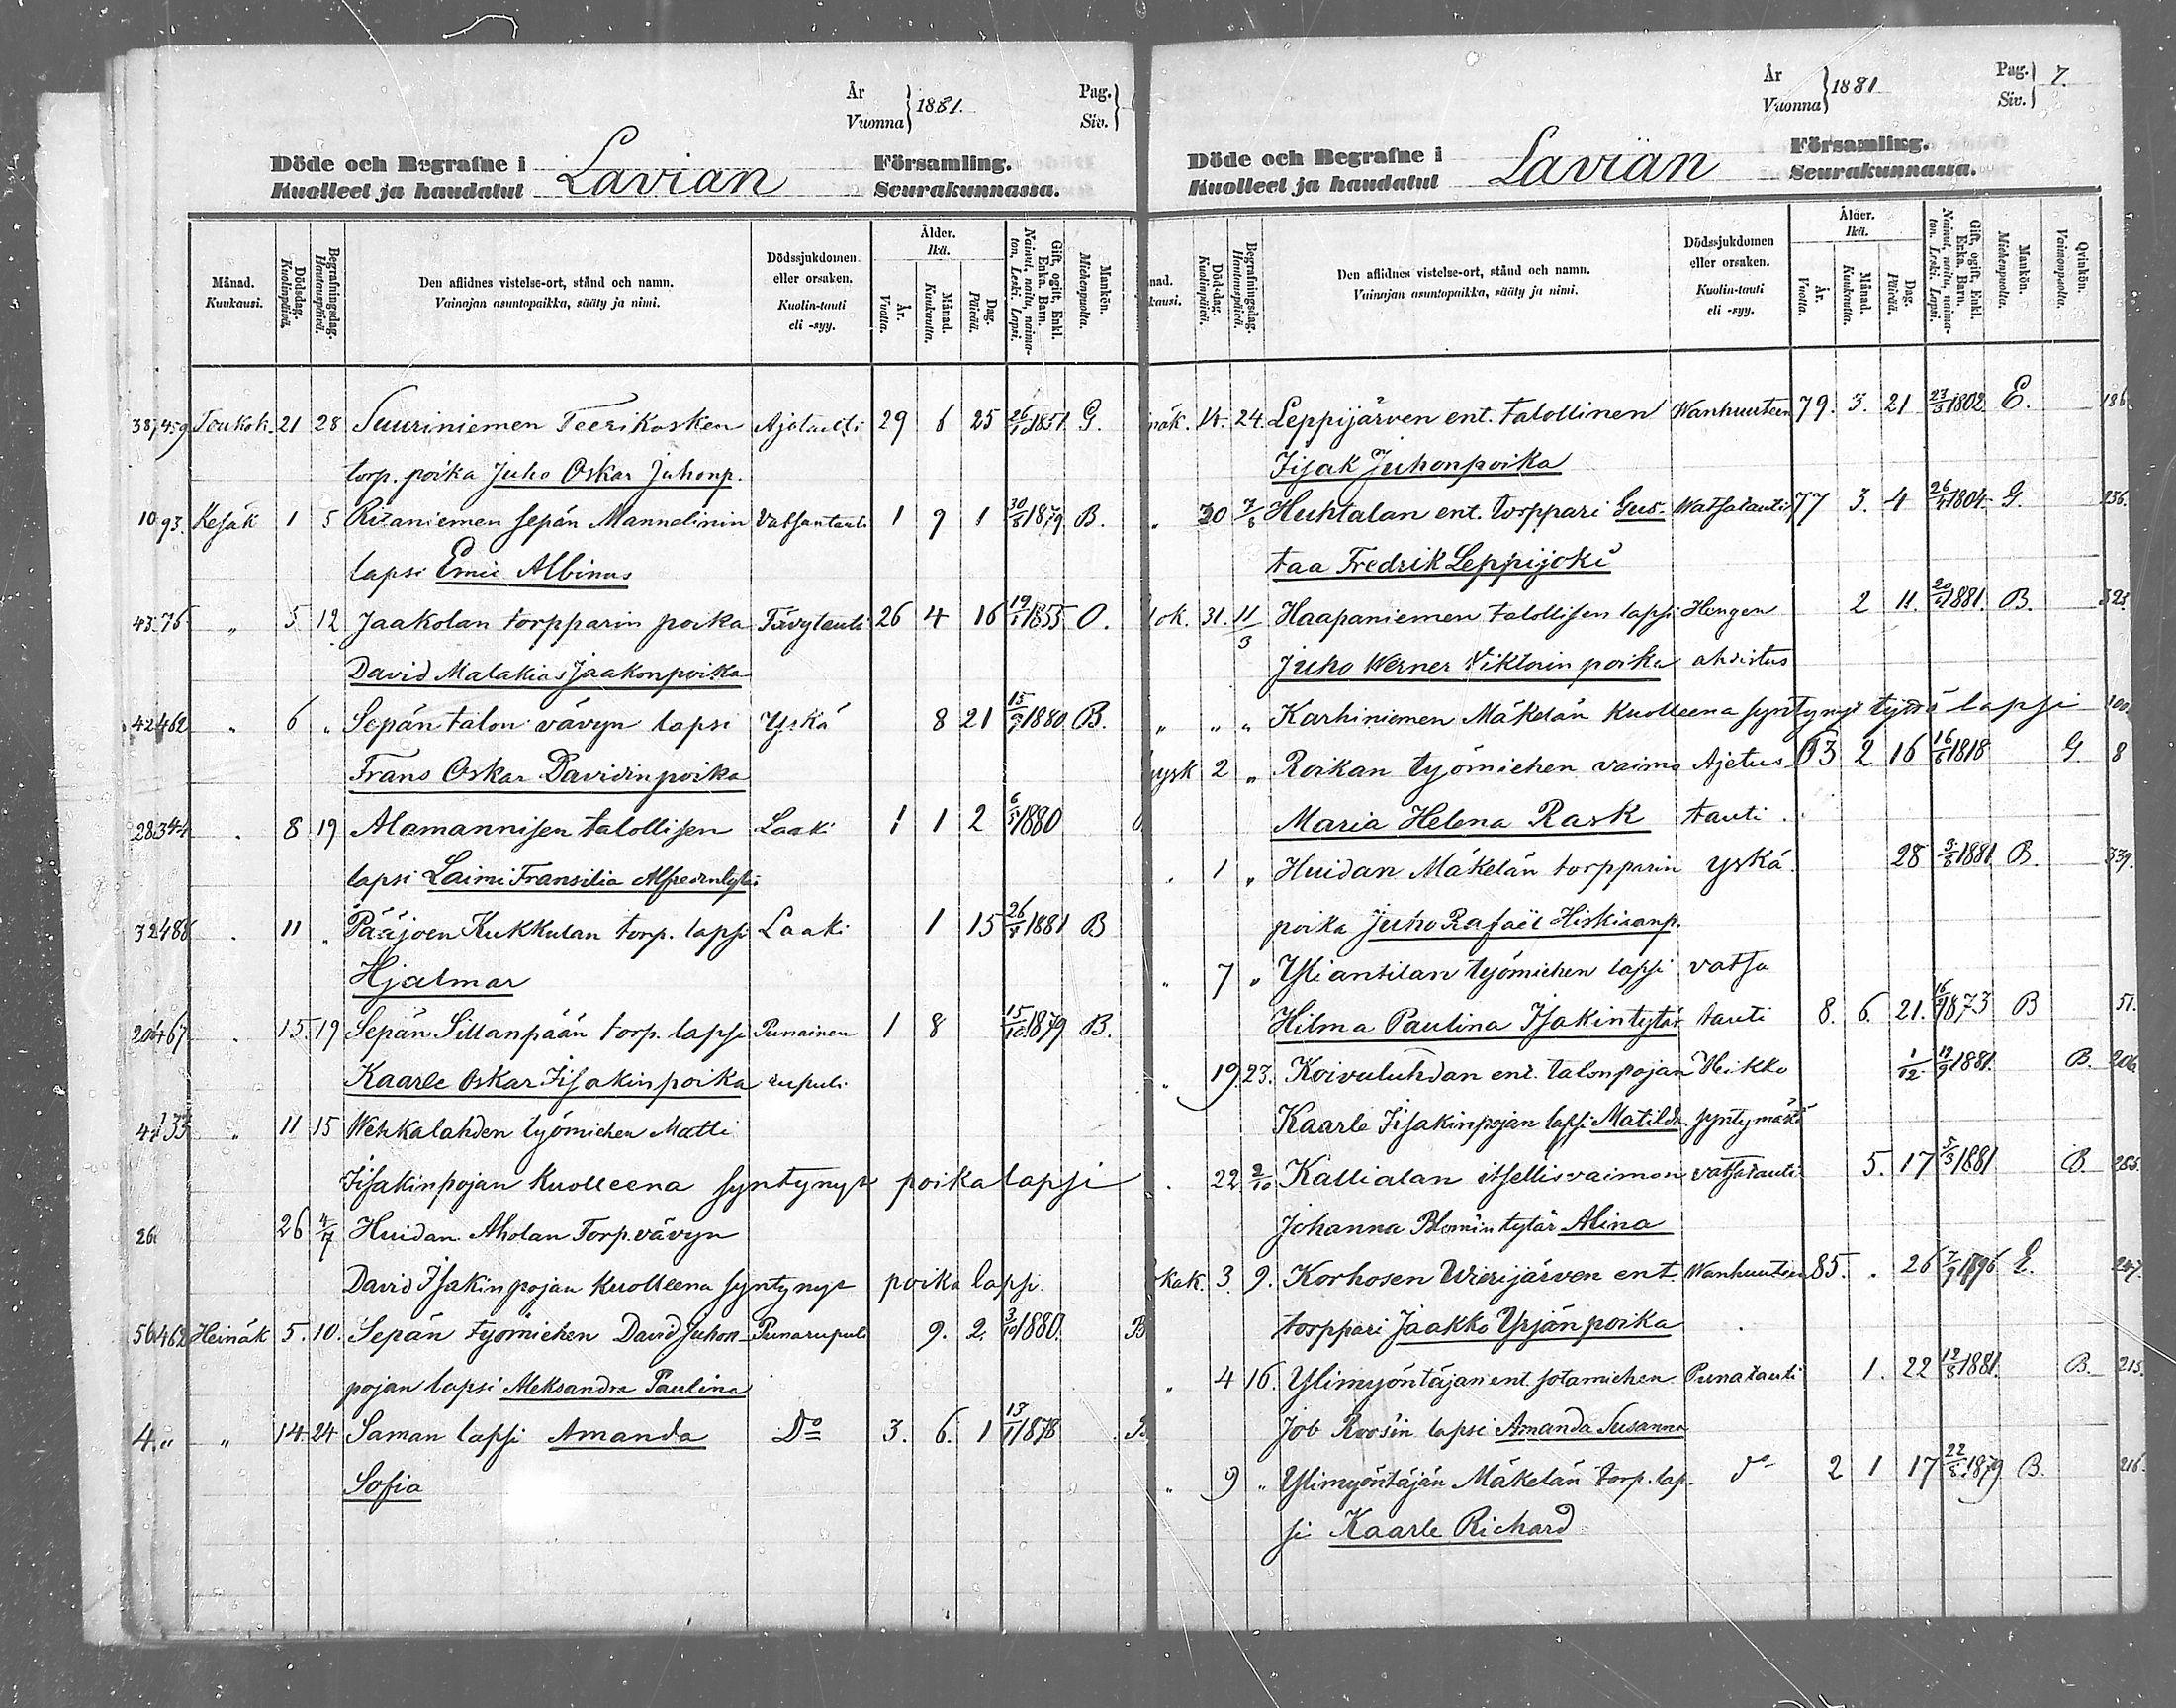 År
Vuonna 1881.
Pag.
Siv.
Döde och Begrafne i Lavian Församling.
Kuolleet ja haudatut Seurakunnassa.
Månad. Kuukausi.
Dödsdag. Kuolinpäivä.
Begrafningsdag. Hautauspäivä.
Den aflidnes vistelse-ort, stånd och namn.
Vainajan asuntopaikka, sääty ja nimi.
Dödssjukdomen eller orsaken.
Kuolin-tauti eli -syy.
Ålder. Ikä.
År. Vuotta.
Månad. Kuukautta.
Dag. Päivää.
Gift, ogift, Enkl. Enka. Barn.
Nainut, naitu, naimaton. Leski. Lapsi.
Mankön. Miehenpuolta.
387,459 Toukok. 21 28 Suuriniemen Teerikosken Ajotauti 29 6 25 26/10 1851 G.
torp. poika Juho Oskar Juhonp.
10 93. Kesäk 1 5 Ritaniemen sepän Mannelinin Vatsantauti 1 9 1 30/8 1879 B.
lapsi Emil Albinus
43 76 " 5 12 Jaakolan torpparin poika Tävytauti 26 4 16 19/1 1855 O.
David Malakias Jaakonpoika
42 462 " 6 " Sepän talon vävyn lapsi Yskä 8 21 15/9 1880 B.
Frans Oskar Davidinpoika
28 344 " 8 19 Alamannisen talollisen Laaki 1 1 2 6/5 1880
lapsi Laimi Fransilia Alfredintytär
32 488 " 11 " Pääjoen Kukkulan torp. lapsi Laaki 1 15 26/4 1881 B
Hjalmar
20 467 " 15. 19 Sepän Sillanpään torp. lapsi Punainen 1 8 15/10 1879 B.
Kaarle Oskar Iisakinpoika rupuli
41 33 " 11 15 Wehkalahden työmiehen Matti
Iisakinpojan kuolleena syntynyt poika lapsi
26 26 4/7 Huidan Aholan Torp. vävyn
David Isakinpojan kuolleena syntynyt poika lapsi.
56 462 Heinäk 5. 10. Sepän työmiehen David Juhon- Punarupuli 9. 2. 3/10 1880. B
pojan lapsi Aleksandra Paulina
4. " " 14. 24 Saman lapsi Amanda Do 3. 6. 1 13/1 1878 B
Sofia
År
Vuonna 1881
Pag.
Siv. 7.
Döde och Begrafne i Lavian Församling.
Kuolleet ja haudatut Seurakunnassa.
nad. kausi.
Dödsdag. Kuolinpäivä.
Begrafningsdag. Hautauspäivä.
Den aflidnes vistelse-ort, stånd och namn.
Vainajan asuntopaikka, sääty ja nimi.
Dödssjukdomen eller orsaken.
Kuolin-tauti eli -syy.
Ålder. Ikä.
År. Vuotta.
Månad. Kuukautta.
Dag. Päivää.
Gift, ogift, Enkl. Enka. Barn.
Nainut, naitu, naimaton. Leski. Lapsi.
Mankön. Miehenpuolta.
Qvinkön. Vaimonpuolta.
näk. 14. 24. Leppijärven ent. talollinen Wanhuuteen 79. 3. 21 23/3 1802 E. 186
Iisak Juhonpoika
" 30 7/8 Huhtalan ent. torppari Gus- Watsatauti 77 3. 4 26/4 1804 G. 236.
taa Fredrik Leppijoki
lok. 31. 11/3 Haapaniemen talollisen lapsi Hengen 2 11. 20/ 1881 B. 323
Juho Werner Viktorin poika ahdistus
" " " Karhiniemen Mäkelän kuolleena syntynyt tyttö lapsi 100
yysk 2 " Roikan työmiehen vaimo Ajetus 63 2 16 16/6 1818 G. 8
Maria Helena Rask tauti
" 1 " Huidan Mäkelän torpparin yskä 28 3/8 1881 B 339.
poika Juho Rafaël Hiskisanp.
" 7 " Yliantilan työmiehen lapsi vatsa
Hilma Paulina Isakintytär tauti 8. 6. 21. 16/ 1873 B 51.
" 19 23. Koivuluhdan ent. talonpojan Heikko 1/12 19/9 1881. B. 206
Kaarle Iisakinpojan lapsi Matilda syntymästä
" 22 2/10 Kallialan itsellisvaimon vatsatauti 5. 17 5/3 1881 B. 285.
Johanna Blomin tytär Alina
kak. 3. 9. Korhosen Wierijärven ent. Wanhuuteen 85. " 26 7/9 1796 E. 247.
torppari Jaakko Yrjänpoika
" 4 16. Ylimyöntäjän ent sotamiehen Punatauti 1. 22 12/8 1881. B. 215.
Job Roosin lapsi Amanda Susanna
" 9 " Ylimyöntäjän Mäkelän torp. lap- do 2 1 17 22/8 1879 B. 216.
si Kaarle Richard